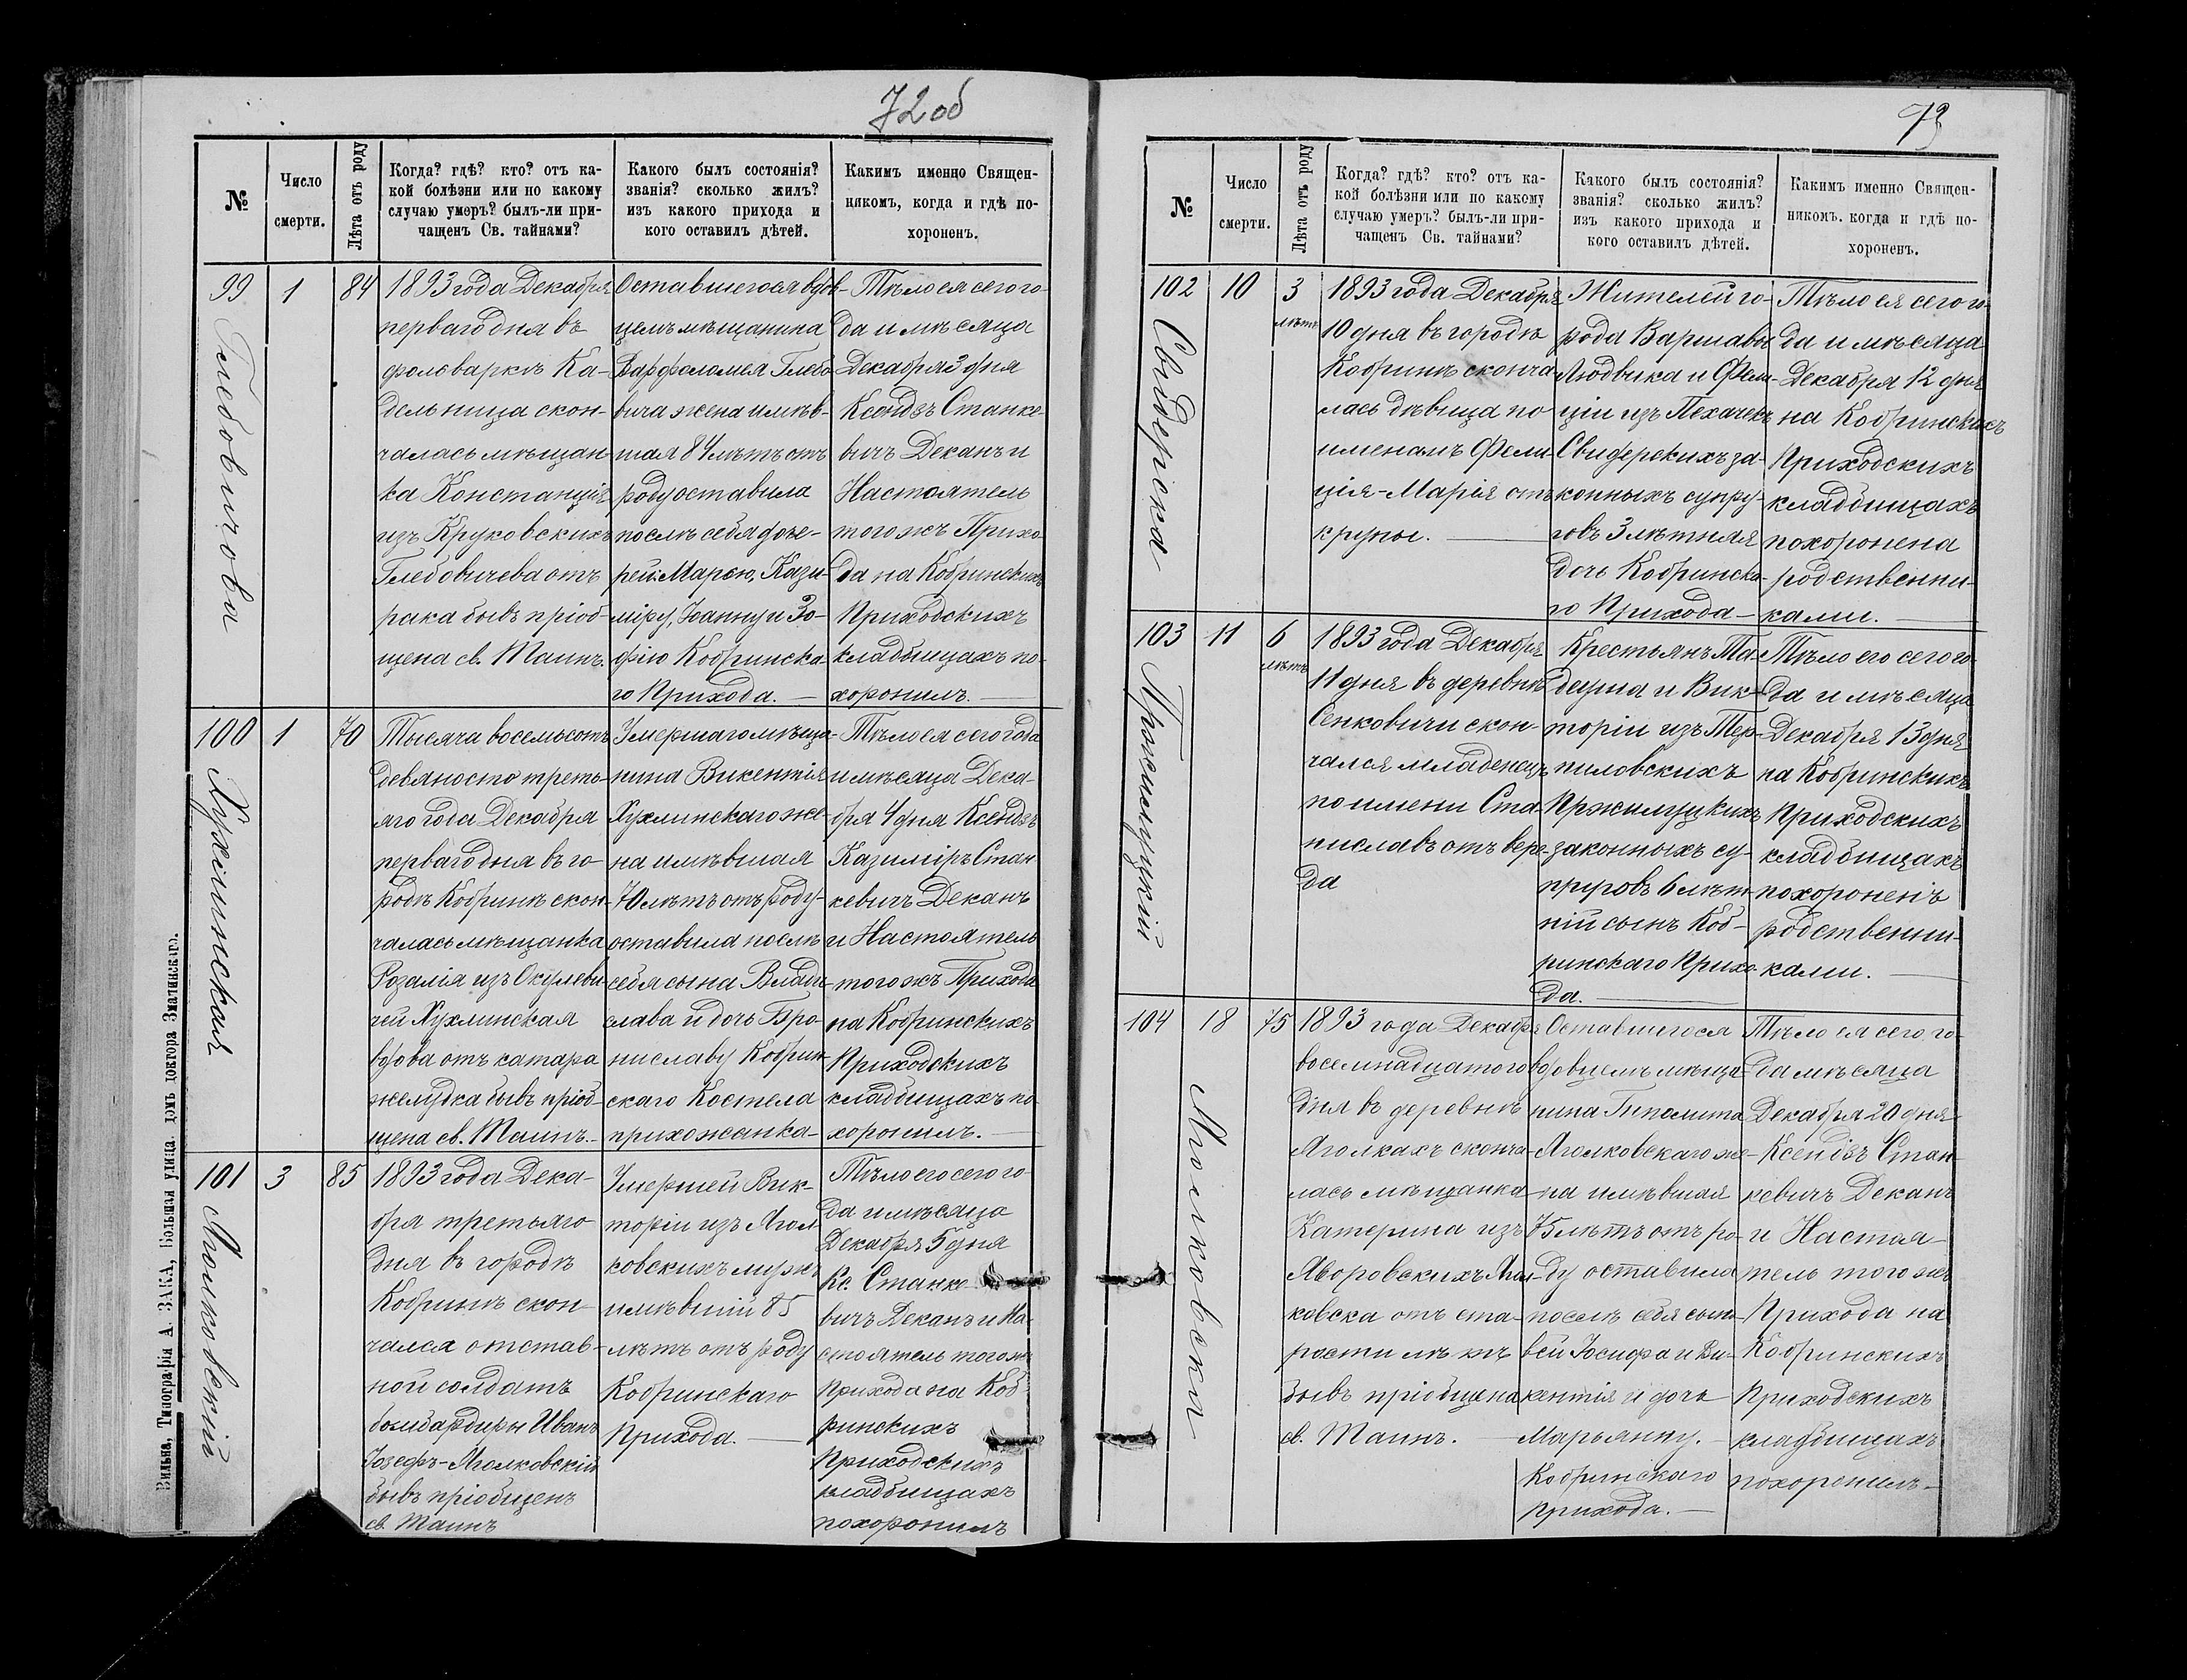 72 об
№
Число
смерти.
Лѣта отъ роду
Когда? гдѣ? кто? отъ ка-
кой болѣзни или по какому
случаю умеръ? былъ-ли при-
чащенъ Св. тайнами?
Какого былъ состоянія?
званія? сколько жилъ?
изъ какого прихода и
кого оставилъ дѣтей.
Какимъ именно Священ-
никомъ, когда и гдѣ по-
хороненъ.
99
Глебовичова
1
84
1893 года Декабря
перваго дня въ
фольваркѣ Ка-
дельница скон-
чалась мѣщан-
ка Констанція
изъ Круковскихъ
Глебовичева отъ
рака бывъ пріоб-
щена св. Таинъ.
Оставшегося вдов-
цемъ мѣщанина
Варфоломея Глебо-
вича жена имѣв-
шая 84 лѣтъ отъ
роду оставила
послѣ себя доче-
рей: Марею, Кази-
міру, Іоанну и Зо-
фію Кобринска-
го Прихода. —
Тѣло ея сего го-
да и мѣсяца
Декабря 3 дня
Ксендзъ Станке-
вичъ Деканъ и
Настоятель
того жъ Прихо-
да на Кобринскихъ
Приходскихъ
кладбищахъ по-
хоронилъ. —
100
Хухлинская
1
70
Тысяча восемьсотъ
девяносто треть-
яго года Декабря
перваго дня въ го-
родѣ Кобринѣ скон-
чалась мѣщанка
Розалія изъ Окулеви-
чей Хухлинская
вдова отъ катара
желудка бывъ пріоб-
щена св. Таинъ. —
Умершаго мѣща-
нина Викентія
Хухлинскаго же-
на имѣвшая
70 лѣтъ отъ роду
оставила послѣ
себя сына Влади-
слава и дочь Бро-
ниславу Кобрин-
скаго Костела
прихожанка —
Тѣло ея сего года
и мѣсяца Дека-
бря 4 дня Ксендзъ
Казиміръ Стан-
кевичъ Деканъ
и Настоятель
того жъ Прихода
на Кобринскихъ
Приходскихъ
кладбищахъ по-
хоронилъ. —
101
Яголковскій
3
85
1893 года Дека-
бря третьяго
дня въ городѣ
Кобринѣ скон-
чался отстав-
ной солдатъ
бомбардиры Иванъ
Іозефъ-Яголковскій
бывъ пріобщенъ
св. Таинъ
Умершей Вик-
торіи изъ Ягол-
ковскихъ мужъ
имѣвшій 85
лѣтъ отъ роду
Кобринскаго
Прихода. —
Тѣло его сего го-
да и мѣсяца
Декабря 5 дня
Кс. Станке-
вичъ Деканъ и На-
стоятель того жъ
Прихода на Коб-
ринскихъ
Приходскихъ
кладбищахъ
похоронилъ
Вильна, Типографія А. ЗАКА, Большая улица, домъ доктора Зматинскаго.
73
№
Число
смерти.
Лѣта отъ роду
Когда? гдѣ? кто? отъ ка-
кой болѣзни или по какому
случаю умеръ? былъ-ли при-
чащенъ Св. тайнами?
Какого былъ состоянія?
званія? сколько жилъ?
изъ какого прихода и
кого оставилъ дѣтей.
Какимъ именно Священ-
никомъ, когда и гдѣ по-
хороненъ.
102
Свидерска
10
3
лѣтъ
1893 года Декабря
10 дня въ городѣ
Кобринѣ сконча-
лась дѣвица по
именамъ Фели-
ція-Марія отъ
крупы. —
Жителей го-
рода Варшавы
Людвика и Фели-
ціи изъ Пехачекъ
Свидерскихъ за-
конныхъ супру-
говъ 3 лѣтняя
дочь Кобринска-
го Прихода —
Тѣло ея сего го-
да и мѣсяца
Декабря 12 дня
на Кобринскихъ
Приходскихъ
кладбищахъ
похоронена
родственни-
ками. —
103
Пржилуцкій
11
6
лѣтъ
1893 года Декабря
11 дня въ деревнѣ
Сенковичи скон-
чался младенецъ
по имени Ста-
ниславъ отъ вере-
да
Крестьянъ Та-
деуша и Вик-
торіи изъ Тер-
пиловскихъ
Пржилуцкихъ
законныхъ су-
пруговъ 6 лѣт-
ній сынъ Коб-
ринскаго Прихо-
да. —
Тѣло его сего го-
да и мѣсяца
Декабря 13 дня
на Кобринскихъ
Приходскихъ
кладбищахъ
похороненъ
родственни-
ками. —
104
Яголковска
18
75
1893 года Декабря
восемнадцатого
дня въ деревнѣ
Яголкахъ сконча-
лась мѣщанка
Катерина изъ
Яворовскихъ Ягол-
ковска отъ ста-
рости лѣтъ
бывъ пріобщена
св. Таинъ. —
Оставшегося
вдовцемъ мѣща-
нина Гиполита
Яголковскаго же-
на имѣвшая
75 лѣтъ отъ ро-
ду оставила
послѣ себя сыно-
вей Іосифа и Ви-
кентія и дочь
Марьянну. —
Кобринскаго
Прихода. —
Тѣло ея сего го-
да мѣсяца
Декабря 20 дня
Ксендзъ Стан-
кевичъ Деканъ
и Настоя-
тель того жъ
Прихода на
Кобринскихъ
Приходскихъ
кладбищахъ
похоронилъ —